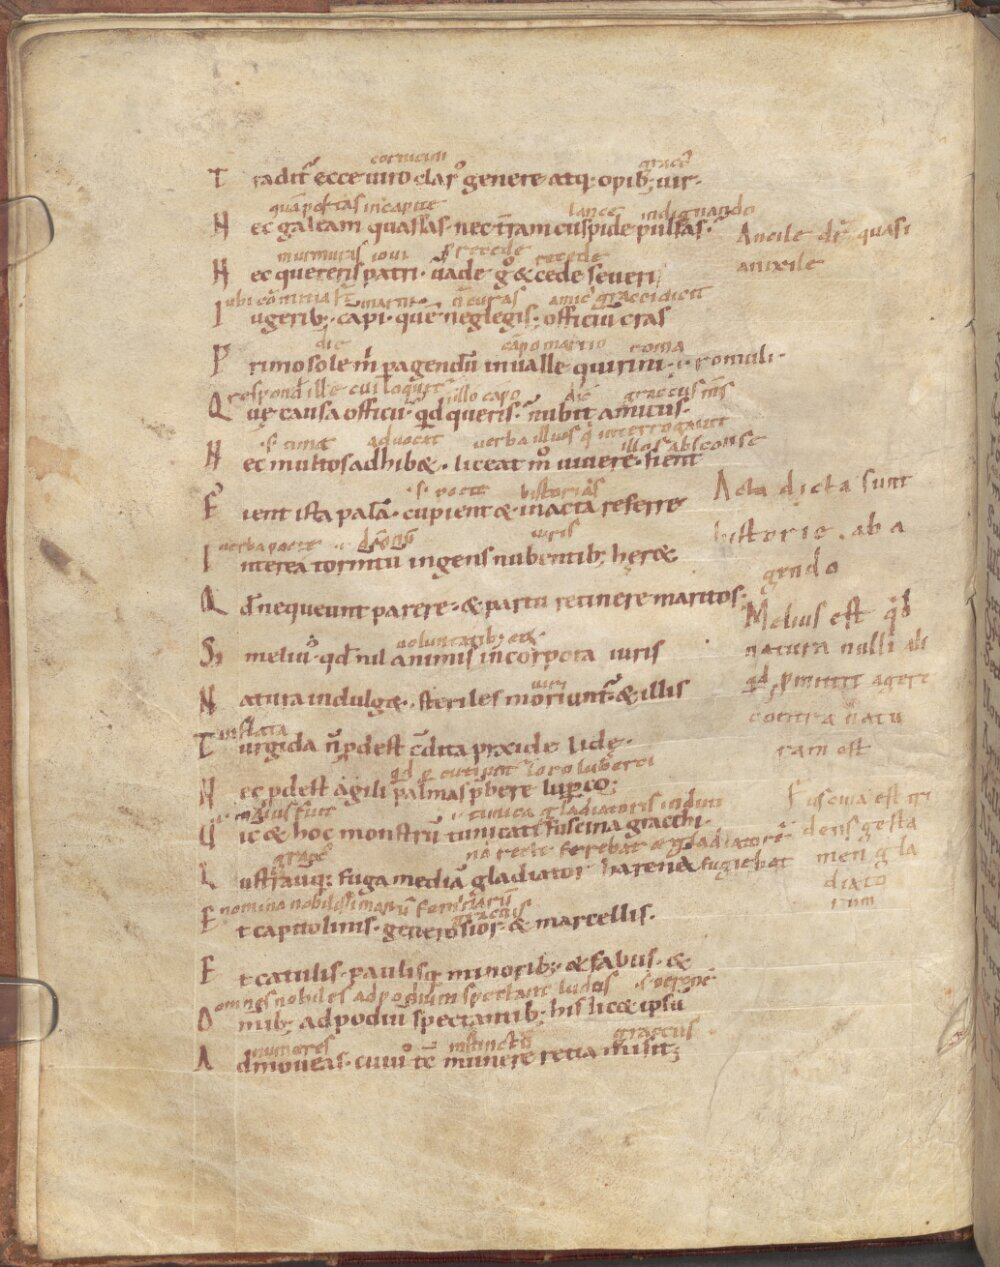 cornicini gracc
Tradit͛ ecce uiro clar᷒ genere atq; opib; uir.
quā portas in capite lance indignando
Nec galeam quassas. nec t̄ram cuspide pulsas.
Ancile dr̄ quasi
murmuras ioui recede recede
anixile
Nec quereris patri. uade g̊ & cede seueri
ubi comitia n̄ curas amic graeci dicit
Iugerib; campi. quē neglegis. officiū cras
dic cāpo martio roma
Primo sole m̄ peragendū in ualle quirini. romuli.
respond& ille cui loquit᷒ illo cāpo dic graccus
Quę causa officii. qd queris. nubit amicus.
advocat verba illius q̄ interrogauit illos absconse
Nec multos adhib&. liceat m̊ uiuere. fient
.s. poete historias
Acta dicta sunt
Fient ista palā. cupient & in acta referre
verba poete uiris
historie. ab a
Interea tormtū ingens nubentib; her&
gendo
Qd nequeunt parere. & partu retinere maritos.
Melius est qd
voluntatib;
natura nulli
Sz meliu᷒. qd nil animis in corpora iuris
qd pmittit agere
uiri
Natura indulg&. steriles moriunt͛. & illis
contra natu
inflata
ram est
Turgida n̄ pdest cōdita pixide lide.
loro luperci
Nec pdest agili palmas p̄bere luperco.
tunica gladiatoris induti
Fuscina est tri
Vic & hoc monstrū tunicati fuscina gracchi.
nā recte ferebat
dens gesta
gracc
men gla
Lustrauitq; fuga mediā gladiator harenā fugiebat
diato
nomina nobilissimorū
rum
Et capitolinis. generosior. & marcellis.
Et catulis. paulisq; minorib; & fabiis. &
omnes nobiles ad podium spectant ludos
Omnib; ad podiū spectantib; his lic& ipsū
numeres graccus
Admoueas. cuiu᷒ tc̄ munere retia misit;